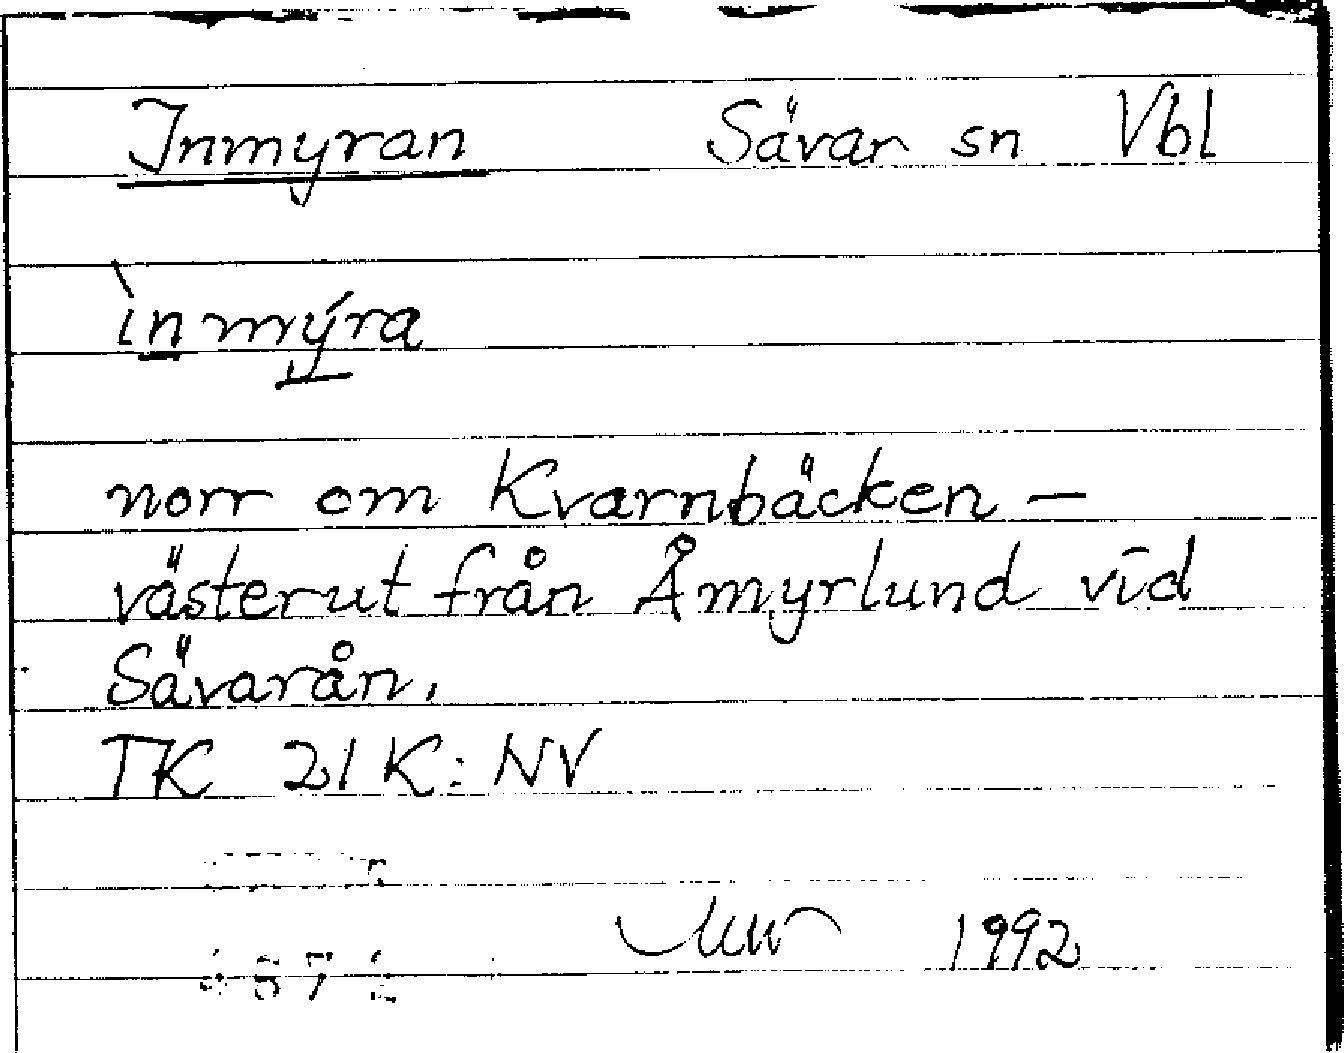 Inmyran Sävar sn Vbl
ìnmýra
norr om Kvarnbäcken –
västerut från Åmyrlund vid
Sävarån.
TK 21 K: NV
1992